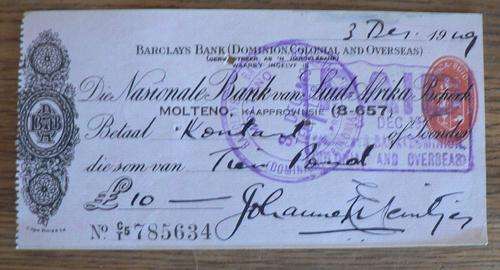 3 Des. 1949
BARCLAYS BANK (DOMINION, COLONIAL AND OVERSEAS)
WAARBY INGELYF IS
Die Nasionale Bank van Suid-Afrika Beperk
MOLTENO, KAAPPROVINSIE (8-657)
Betaal Kontant of Toonder
die som van Tien Pond
£10 —
Johannes
No C/T5 785634
PAID
DEC
BARCLAYS BANK (DOMINION,
COLONIAL AND OVERSEAS)